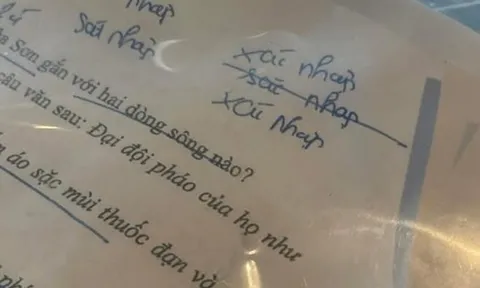 nhập
sát nhập
xác nhập
sát nhập
xác nhập
Sơn gắn với hai dòng sông nào?
câu văn sau: Đại đội pháo của họ như
áo sặc mùi thuốc đạn và